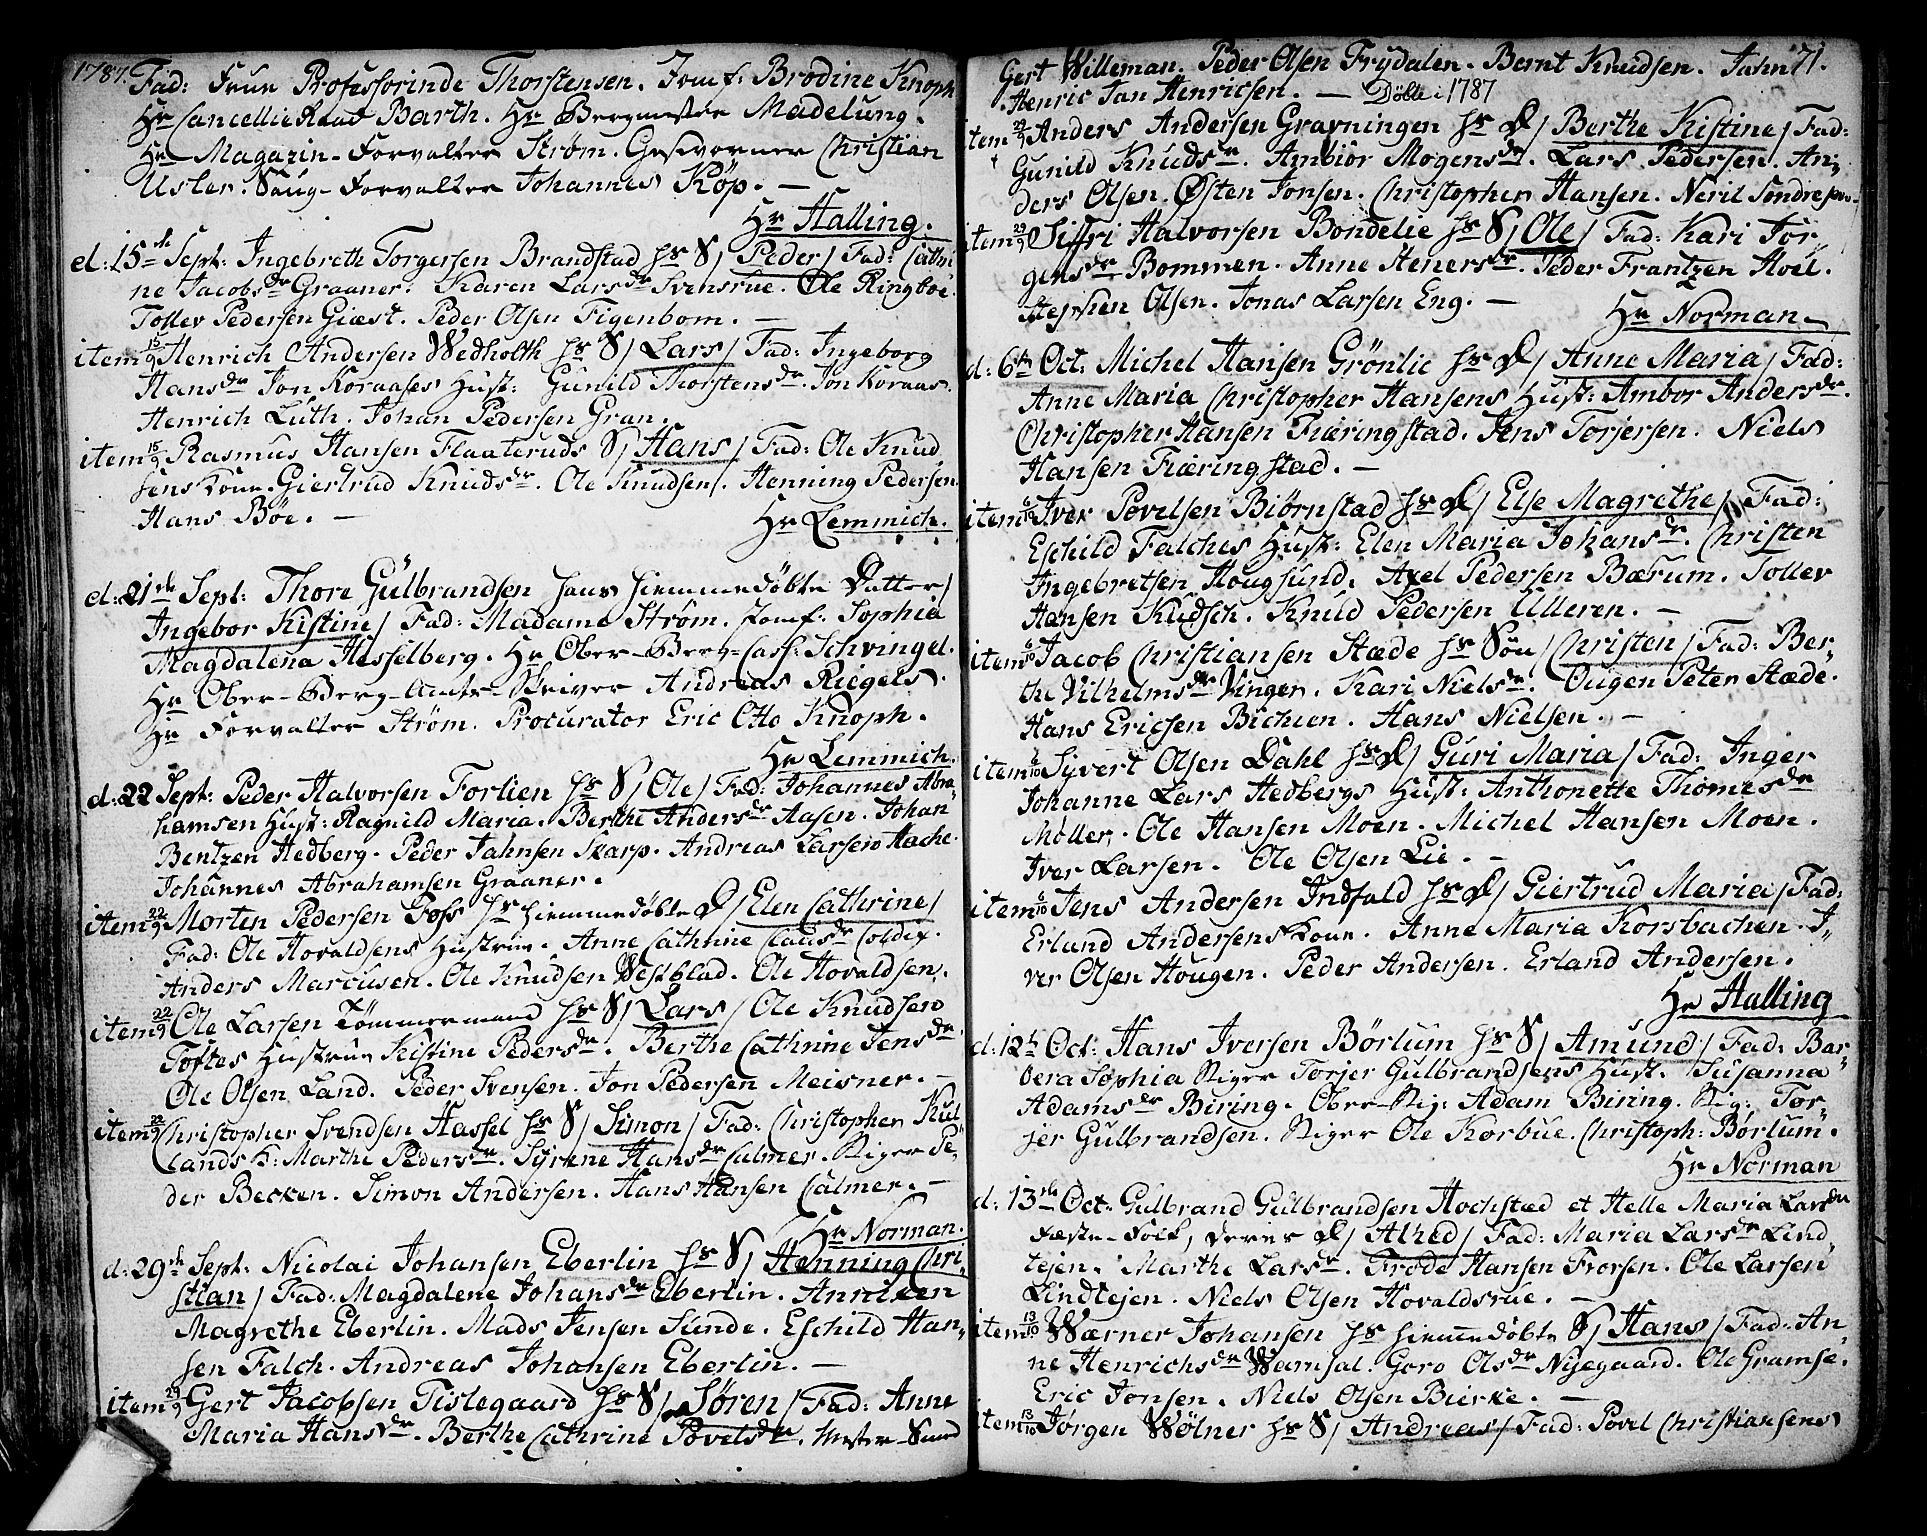 1787. Fad: Frue Professorinde Thorstensen. Jomf: Brodine Knoph
Hr Cancellie Raad Barth. Hr Bergmester Madelung.
Hr Magazin-Forvalter Strøm. Gesvorner Christian
Usler. Saug-Forvalter Johannes Køp. —
Hr Halling.
d: 15de Sept: Ingebreth Torgersen Brandstad hs S/ Peder/ Fad: Cathri
ne Jacobsdr Graaner. Karen Larsdr Svensrue. Ole Ringboe
Tollev Pedersen Giæst. Peder Olsen Figenbom. —
item 15/9 Henrich Andersen Wedholth hs S/ Lars/ Fad: Ingeborg
Hansdr Jon Koraases Hust: Gunild Thorstensdr. Jon Koraas.
Henrich Luth. Johan Pedersen Gran.
item 15/9 Rasmus Hansen Flaateruds S/ Hans/ Fad: Ole Knud
sens Kone Giertrud Knudsdr. Ole Knudsen. Henning Pedersen
Hans Bøe. —
Hr Lemmich.
d: 21de Sept: Thore Gülbrandsen hans hiemmedøbte Datter/
Ingebor Kistine/ Fad: Madame Strøm. Jomf: Sophia
Magdalena Hesselberg. Hr Ober-Berg-Cass: Schvingel.
Hr Ober-Berg-Amts-Skriver Andreas Riegels.
Hr Forvalter Strøm. Procurator Eric Otto Knoph.
Hr Lemmich.
d: 22 Sept: Peder Halvorsen Forlien hs S/ Ole/ Fad: Johannes Abra=
hamsen Hust: Ragnild Maria. Berthe Andersdr Aasen. Johan
Bentzen Hedberg. Peder Jahnsen Skarp. Andreas Larsen Hache
Johannes Abrahamsen Graaner.
item 22/9 Morten Pedersen Foss hs hiemmedøbte D/ Elen Cathrine/
Fad: Ole Hovaldsens Hustrue. Anne Cathrine Clausdr Coldix.
Anders Marcusen. Ole Knudsen Westblad. Ole Hovaldsen.
item 22/9 Ole Larsen Tømmermand hs S/ Lars/ Ole Knudsen
Toftes Hustrue Kistine Pedersdr. Berthe Cathrine Jensdr
Ole Olsen Land. Peder Svensen. Jon Pedersen Meisner. —
item 22/9 Christopher Svendsen Hassel hs S/ Simon/ Fad: Christopher Kul
lands K: Marthe Pedersdr. Syrene Hansdr Calmer. Stiger Pe=
der Becken. Simon Andersen. Hans Hansen Calmer. —
Hr Norman.
d: 29de Sept: Nicolai Johansen Eberlin hs S/ Henning Chri=
stian/ Fad: Magdalene Johansdr Eberlin. Anniken
Magrethe Eberlin. Mads Jensen Sunde. Eschild Han=
sen Falch. Andreas Johansen Eberlin. —
item 29/9 Gert Jacobsen Tislegaard hs S/ Søren/ Fad: Anne
Maria Hansdr. Berthe Cathrine Povelsdr.
Gert Willeman. Peder Olsen Frydalen. Bernt Knudsen. Jahn 71.
Henric Jan Henricsen. — Døbte 1787
item 29/9 Anders Andersen Gravningen hs D/ Berthe Kistine/ Fad:
Gunild Knudsdr. Ambiør Mogensdr. Lars Pedersen. An=
ders Olsen. Østen Jonsen. Christopher Hansen. Neril Søndresen.
item 29/9 Siffri Halvorsen Bondelie hs S/ Ole/ Fad: Kari Jør
gensdr Bommen. Anne Stenersdr. Peder Frantzen Hoel.
Stephen Olsen. Jonas Larsen Eng. —
Hr Norman.
d: 6te Oct: Michel Hansen Grönlie hs D/ Anne Maria/ Fad:
Anne Maria Christopher Hansens Hust: Ambor Andersdr.
Christopher Hansen Fiæringstad. Jens Torjersen. Niels
Hansen Fiæringstad. —
item 6/10 Iver Povelsen Biørnstad hs D/ Else Magrethe/ Fad:
Eschild Falches Hust: Elen Maria Johansdr. Christen
Ingebretsen Hougsund. Axel Pedersen Bærum. Tollev
Hansen Kudsch. Knud Pedersen Ulleren. —
item 6/10 Jacob Christiansen Stæde hs Søn/ Christen/ Fad: Ber=
the Vilhelmsdr Vinger. Kari Nielsdr. Ougen Peter Stæde.
Hans Ericsen Bichien. Hans Nielsen. —
item 6/10 Syvert Olsen Dahl hs D/ Guri Maria/ Fad: Inger
Johanne Lars Hedbergs Hust: Anthonette Thomesdr
Møller. Ole Hansen Moen. Michel Hansen Moen.
Iver Larsen. Ole Olsen Lie. —
item 6/10 Jens Andersen Indfald hs D/ Giertrud Maria/ Fad:
Erland Andersens Kone. Anne Maria Korsbachen. I=
ver Olsen Hougen. Peder Andersen. Erland Andersen.
Hr Halling
d: 12te Oct: Hans Iversen Börlum hs S/ Amund/ Fad: Bar=
bera Sophia Stiger Torjer Gulbrandsens Hust. Susanna
Adamsdr Biring. Ober-Stig: Adam Biring. Stig: Tor=
jer Gulbrandsen. Stiger Ole Korbue. Christoph: Börlum.
Hr Norman
d: 13de Oct: Gulbrand Gulbrandsen Hochstad et Helle Maria Larsdr
Fæste-Folk, deres D/ Alhed/ Fad: Maria Larsdr Lind
tejen. Marthe Larsdr. Frode Hansen Frorsen. Ole Larsen
Lindtejen. Niels Olsen Hovaldsrue. —
item 13/10 Wærner Johansen hs hiemedøbte S/ Hans/ Fad: An=
ne Henrichsdr Wamsal. Goro Olsdr Nyegaard. Ole Gramse.
Eric Jonsen. Niels Olsen Bierke. —
item 13/10 Jørgen Wölner hs S/ Andreas/ Fad: Povel Christiansens